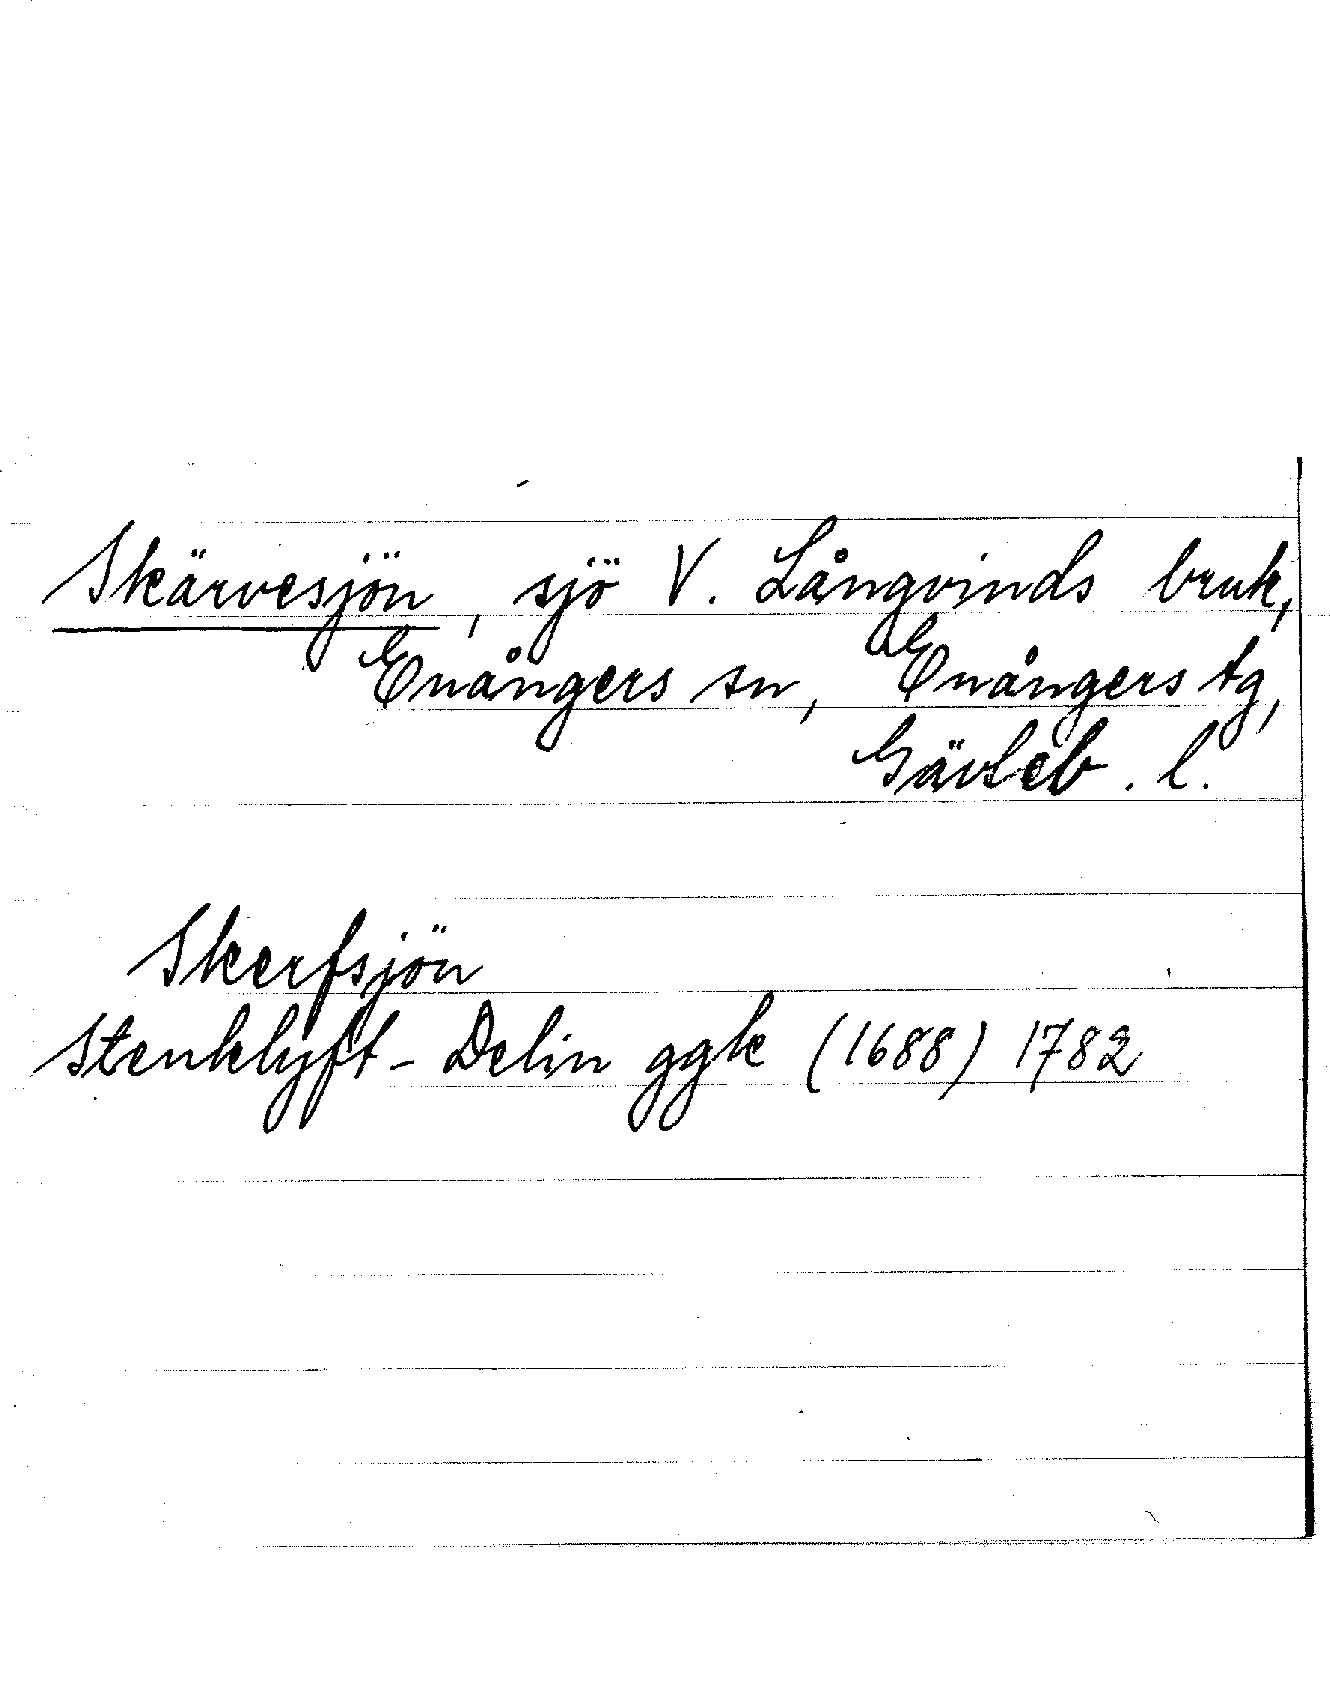 Skärvesjön, sjö V. Långvinds bruk,
Enångers sn, Enångers tg,
Gävleb. l.
Skerfsjön
Stenklyft-Delin ggk (1688) 1782